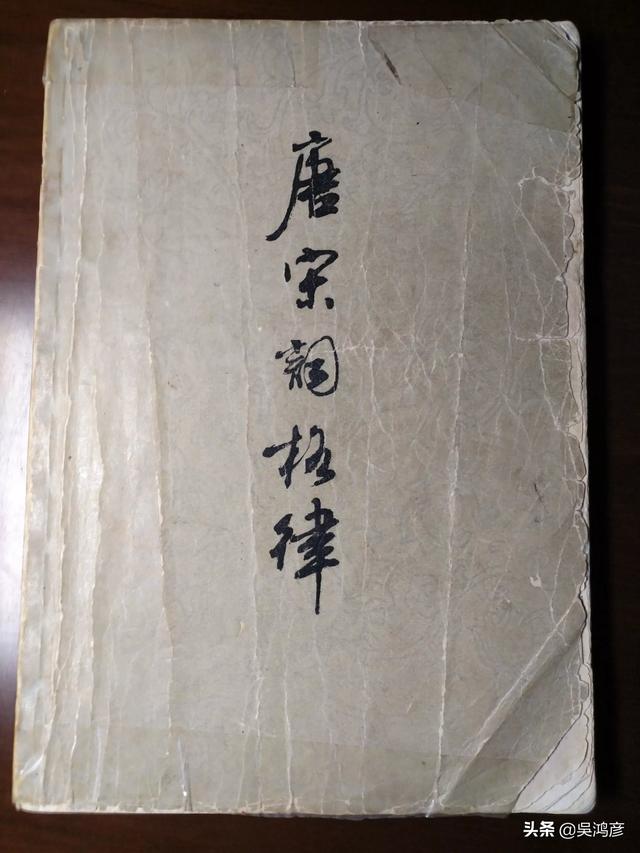 唐宋词格律
头条 @吴鸿彦